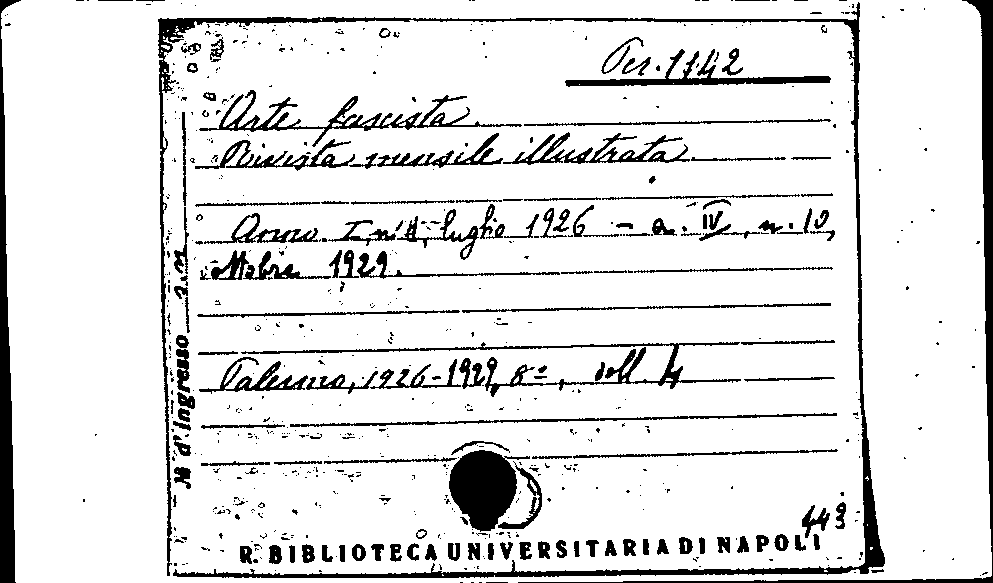 Per. 1142
Arte fascista.
Rivista mensile illustrata.
Anno I, n. 1, luglio 1926 - a. IV, n. 10,
ottobre 1929.
Palermo, 1926-1929, 8°, voll. 4
N. d'Ingresso
443
R. BIBLIOTECA UNIVERSITARIA DI NAPOLI